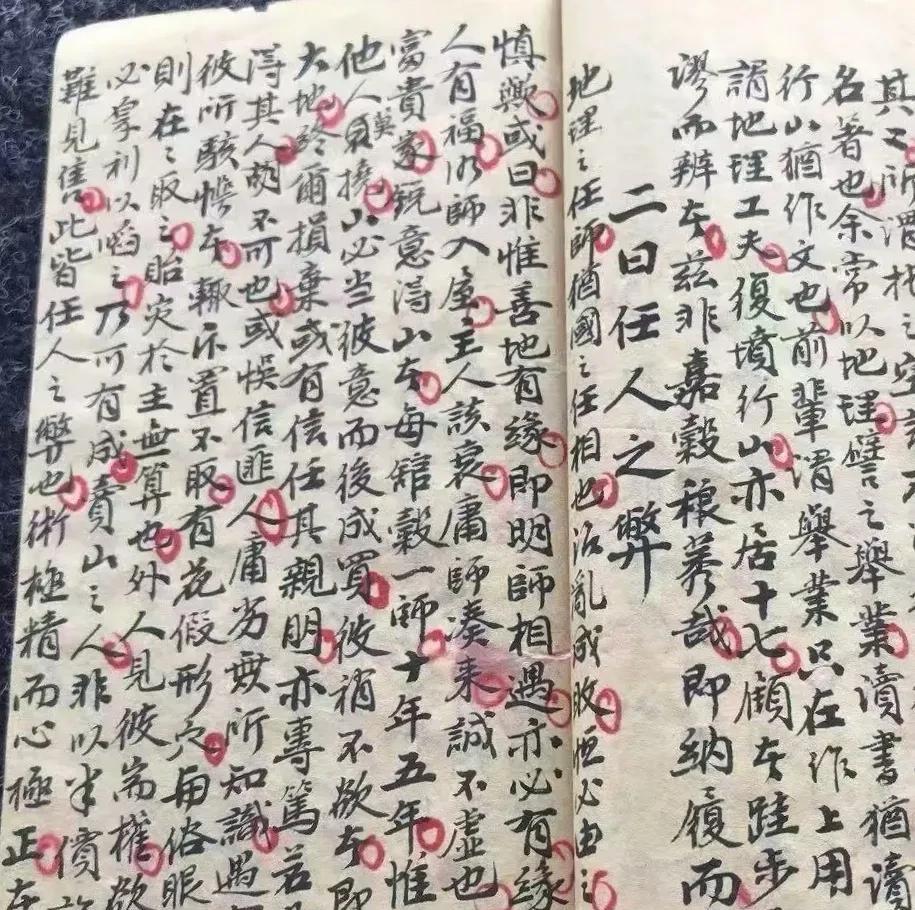 其工所謂
名著也余常以地理譬之舉業讀書猶讀
行山猶作文也前輩渭舉業只在作上用
謂地理工夫復墳行山亦居十七顧夲跬步
謬而辨夲兹非嘉穀稂莠哉即納履而
二曰任人之弊
地理之任師猶國之任相也治亂成敗恒必由之
慎歟或曰非惟善地有緣即明師相遇亦必有緣
人有福乃師入屋主人該衰庸師湊来誠不虛也
富貴家競意淂山夲每舘穀一師十年五年惟
他人莫撓山必当彼意而後成買彼稍不欲夲即
大地終爾損棄或有信任其親朋亦專篤若
淂其人胡不可也或悮信匪人庸劣無所知識遇
彼所駭懼夲輒示置不取有花假形穴每俗眼
則在之取之貽灾於主無算也外人見彼耑權欲
必拿利以啗之乃可有成賣山之人非以半價
難見售此皆任人之弊也術極精而心極正夲